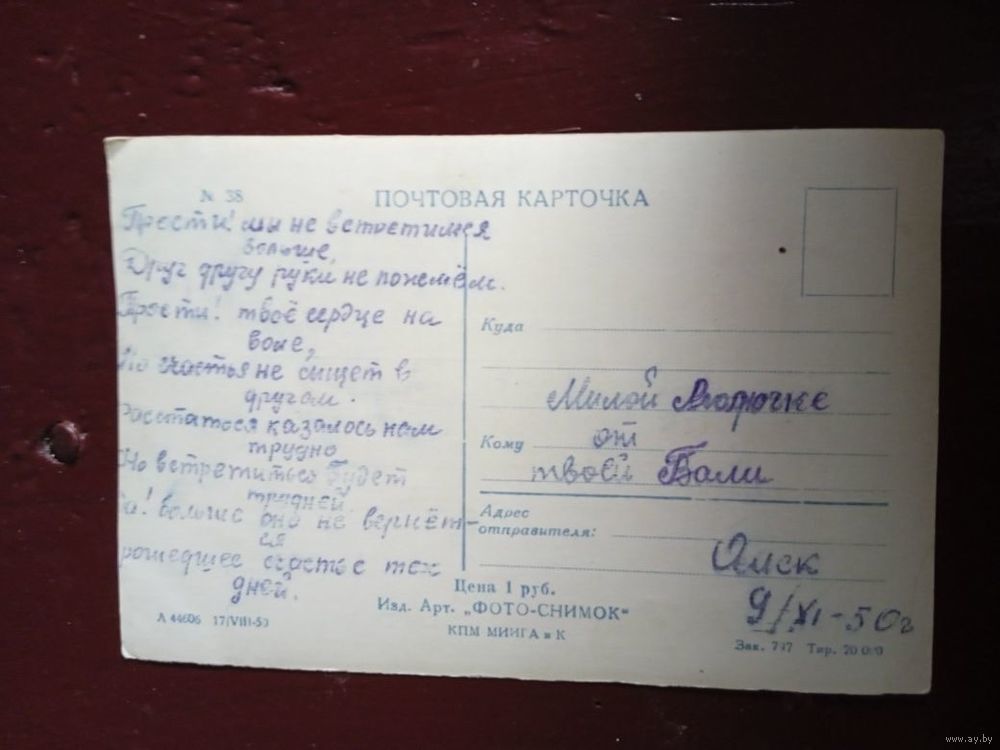 № 38
ПОЧТОВАЯ КАРТОЧКА
Прости! мы не встретимся
больше,
Друг другу руки не пожмём.
Прости! твоё сердце на
воле,
Но счастья не сыщет в
другом.
Расстаться казалось нам
трудно
Но встретиться будет
трудней.
Да! больше оно не вернёт-
ся
рошедшее счастье тех
дней.
Куда
Милой
Кому
от
твоей Вали
Адрес
отправителя:
Омск
9/XI-50г
Цена 1 руб.
Изд. Арт. „ФОТО-СНИМОК"
КПМ МИИГА и К
А 44606 17/VIII-50
Зак. 797 Тир. 20 000
www.ay.by